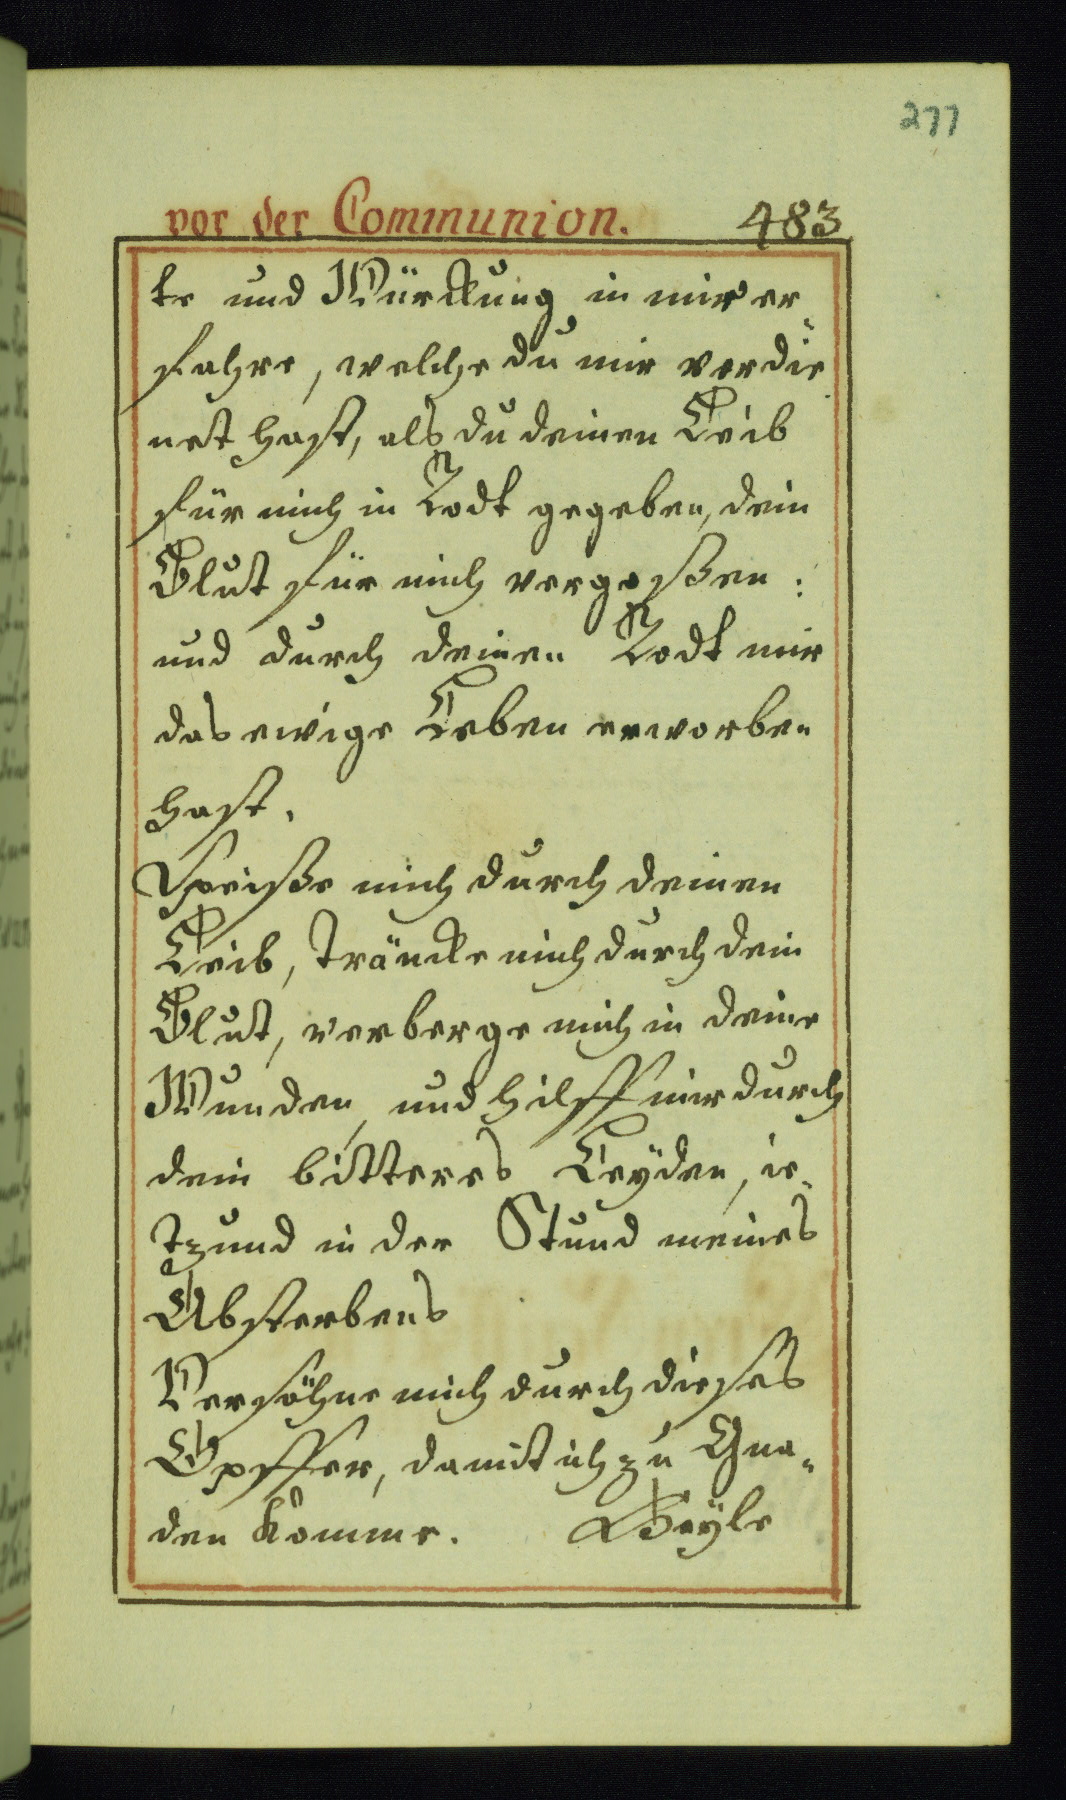 277
vor der Communion. 483
te und Würckung in mir er-
fahre, welche du mir verdie-
net hast, als du deinen Leib
für mich in Todt gegeben, dein
Blut für mich vergoßen:
und durch deinen Todt mir
das ewige Leben erworben
hast.
Speiße mich durch deinen
Leib, träncke mich durch dein
Blut, verberge mich in deine
Wunden, und hilff mir durch
dein bitteres Leyden, ie-
tzund in der Stund meines
Absterbens
Versöhne mich durch dieses
Opffer, damit ich zu Gna-
den komme. Heyle